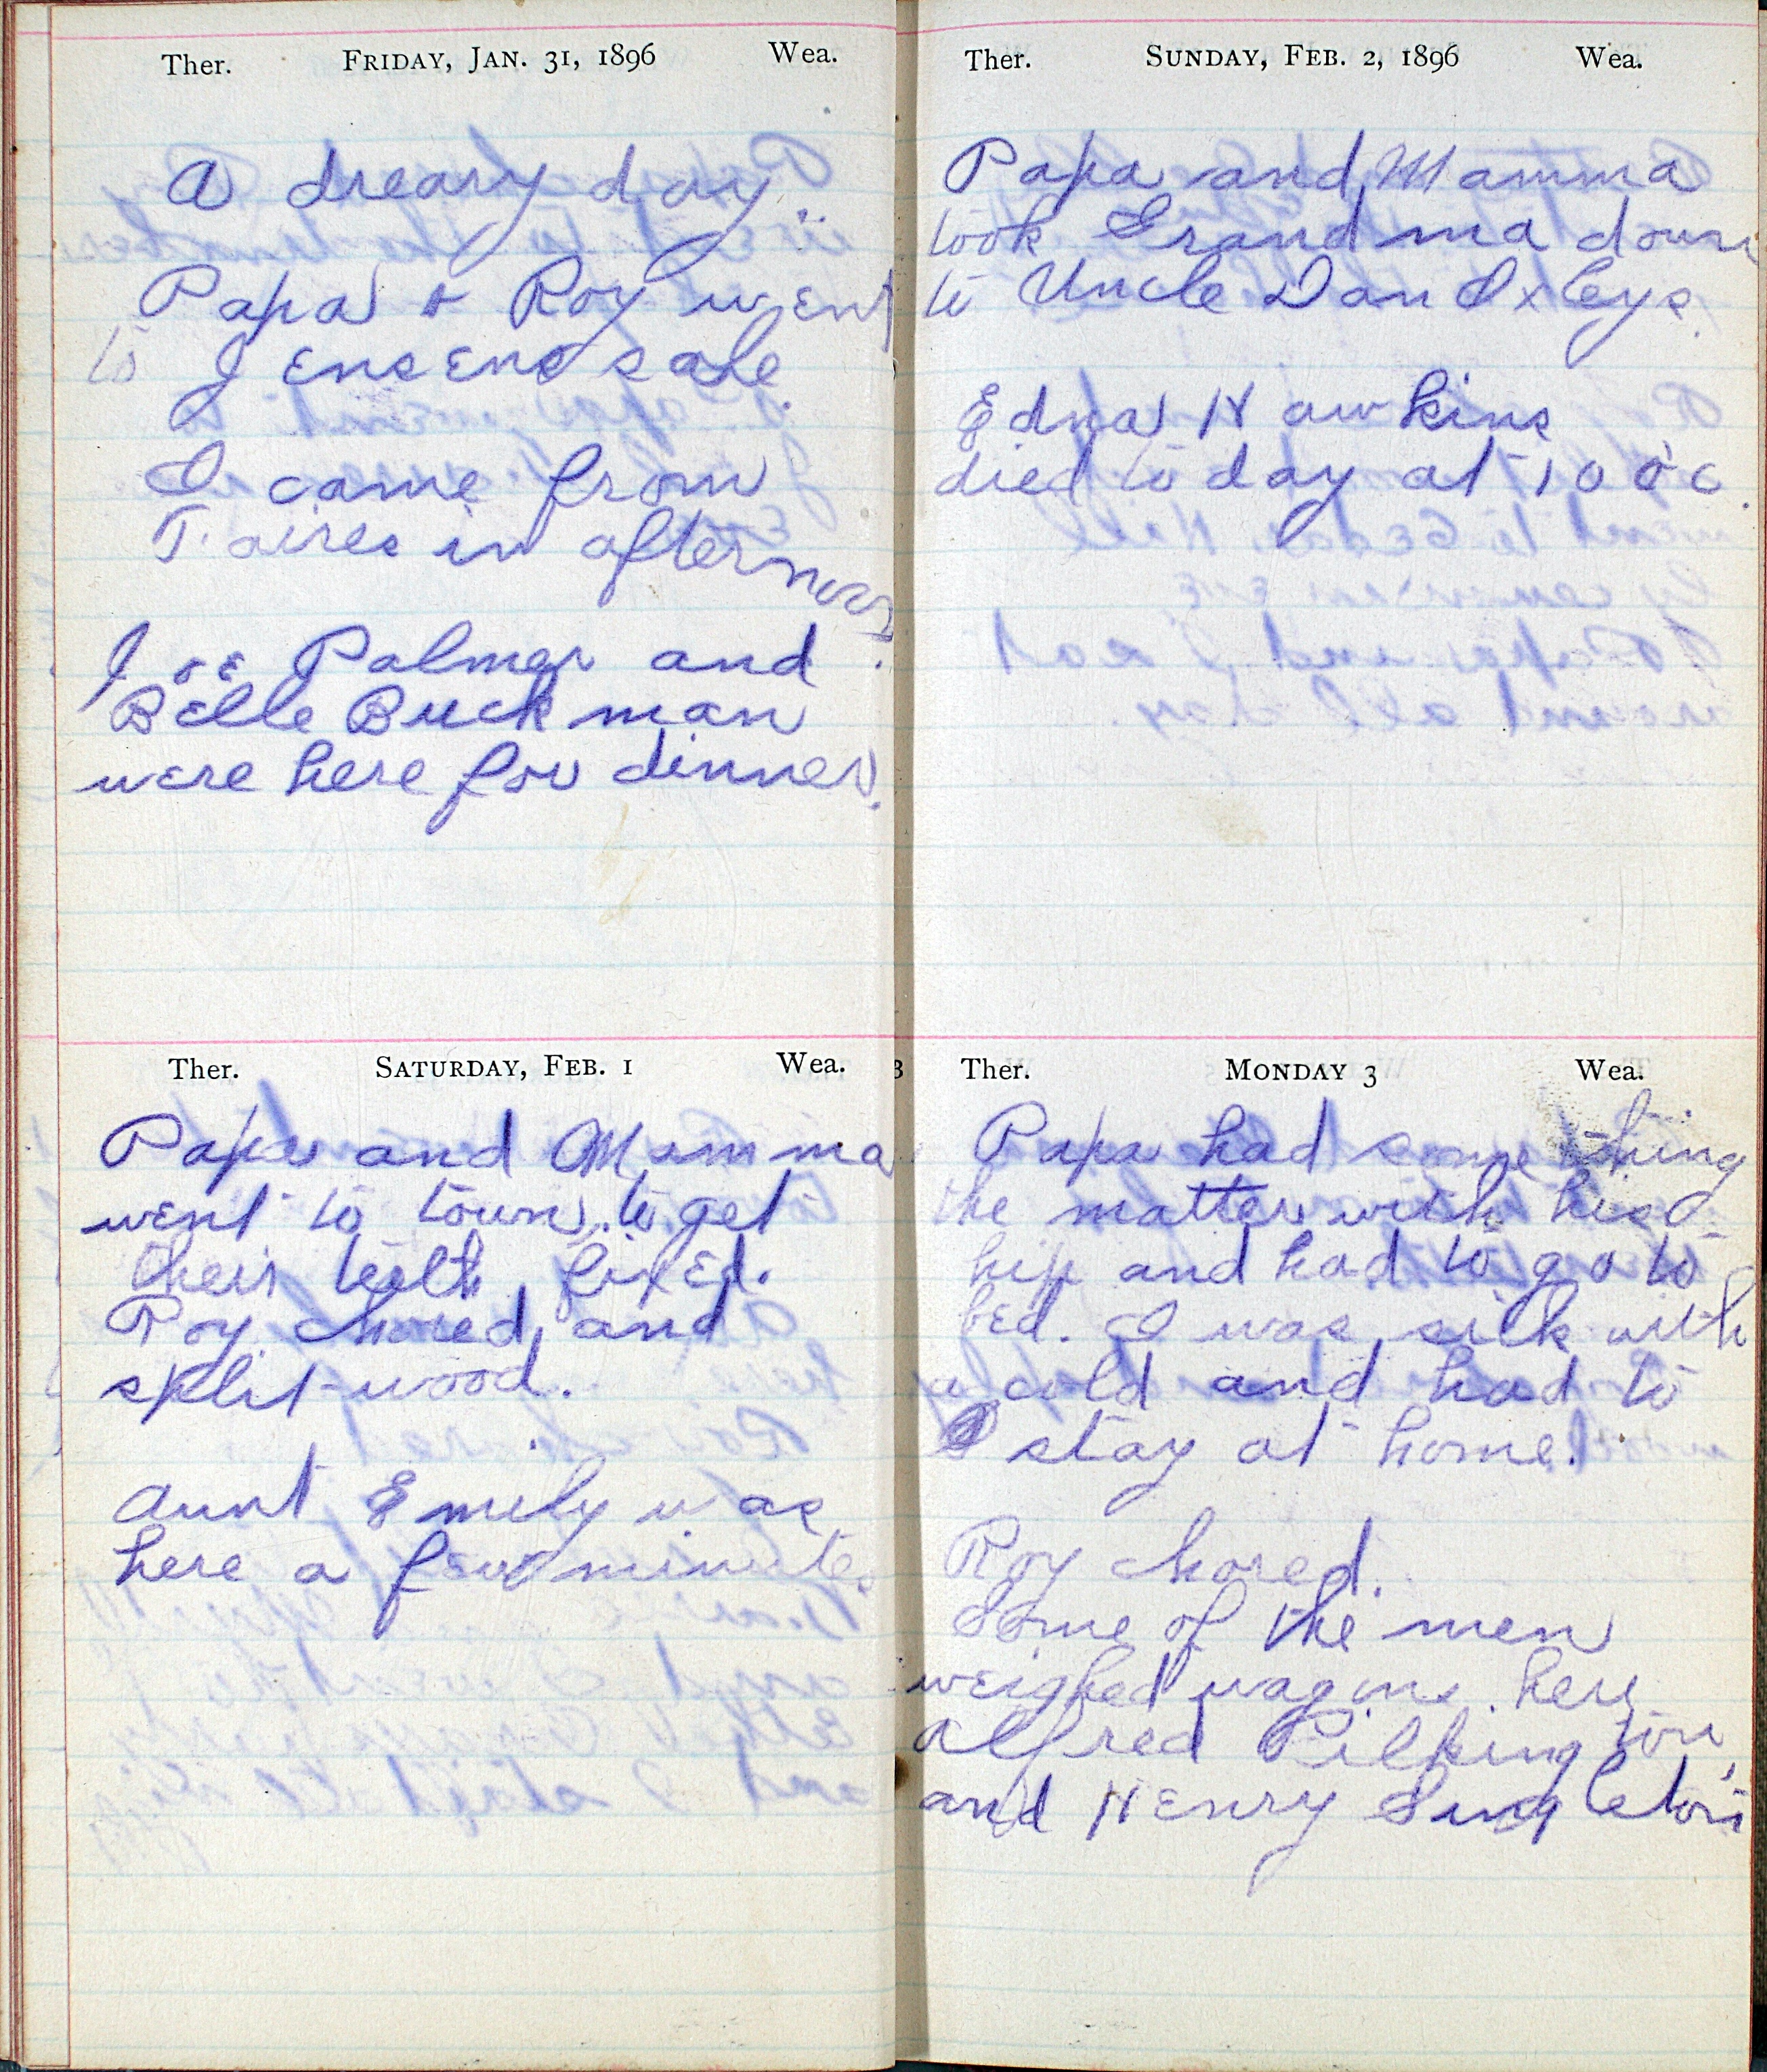 Ther. FRIDAY, JAN. 31, 1896 Wea.
A dreary day.
Papa & Roy went
to Jensens sale.
I came from
Taires in afternoon.
Joe Palmer and
Belle Buckman
were here for dinner.
Ther. SATURDAY, FEB. 1 Wea.
Papa and Mamma
went to town to get
their teeth fixed.
Roy chored and
split wood.
Aunt Emily was
here a few minutes
Ther. SUNDAY, FEB. 2, 1896 Wea.
Papa and Mamma
took Grandma down
to Uncle Dan Oxleys.
Edna Hawkins
died to day at 10 o'c.
Ther. MONDAY 3 Wea.
Papa had something
the matter with his
hip and had to go to
bed. I was sick with
a cold and had to
stay at home.
Roy chored.
Some of the men
weighed wagons here
Alfred Pilkington,
and Henry Singleton